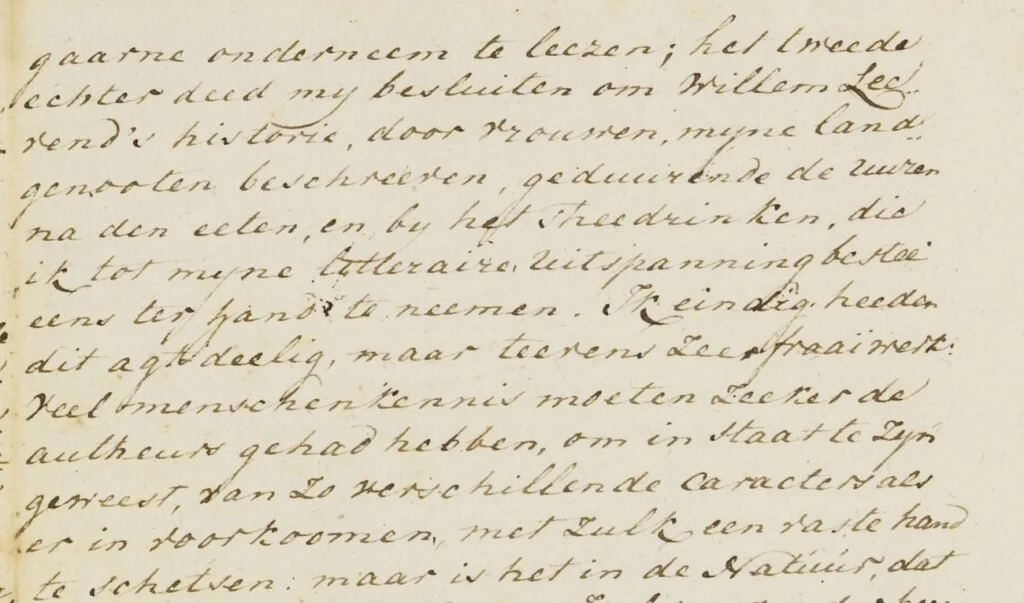 gaarne onderneem te leezen; het tweede
echter deed my besluiten om Willem Lee-
vend's historie, door vrouwen, myne land-
genooten beschreeven, geduurende de uuren
na den eeten, en by het Theedrinken, die
ik tot myne litteraire uitspanning bestee
eens ter hand te neemen. Ik eindig heeden
dit agtdeelig, maar teevens zeer fraai werk:
veel menschenkennis moeten zeeker de
autheurs gehad hebben, om in staat te zyn
geweest, van zo verschillende caracters als
er in voorkoomen, met zulk een vaste hand
te schetsen: maar is het in de Natuur, dat